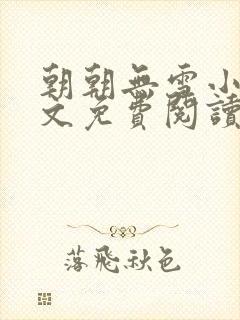 朝朝無雪小
文免費閱讀
落飛秋色